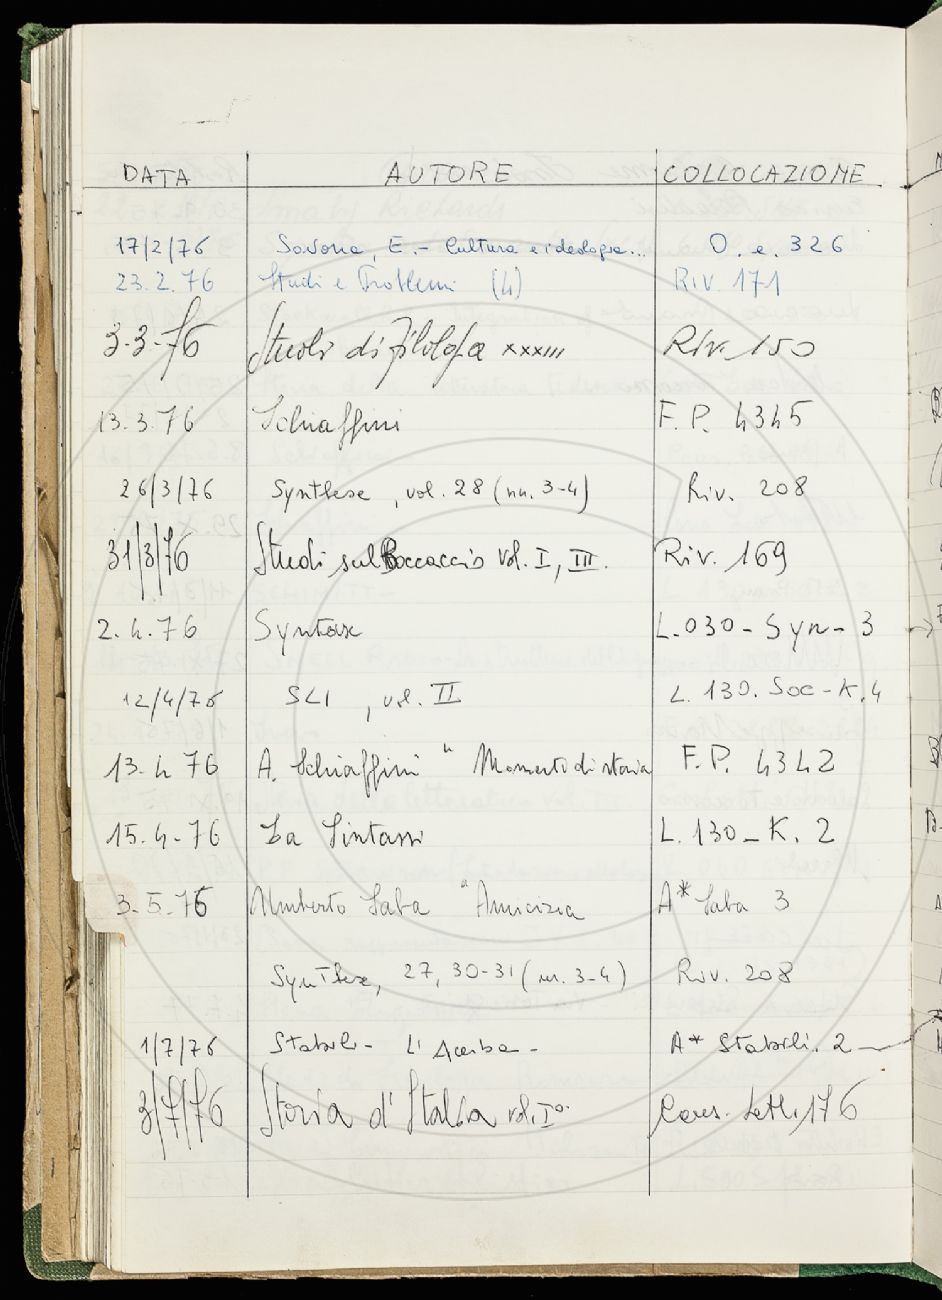 DATA AUTORE COLLOCAZIONE
17/2/76 Savona, E. - Cultura e ideologia... O. e. 326
23.2.76 Studi e Problemi (4) Riv. 171
3-3-76 Studi di filologia XXXIII Riv. 150
13.3.76 Schiaffini F.P. 4345
26/3/76 Synthese, vol. 28 (nn. 3-4) Riv. 208
31/3/76 Studi sul Boccaccio vol. I, III. Riv. 169
2.4.76 Syntax L.030 - Syn - 3
12/4/76 SLI, vol. II L. 130. Soc - K. 4
13.4 76 A. Schiaffini " Momento di storia F.P. 4342
15.4.76 La Sintassi L. 130 - K. 2
3.5.76 Umberto Saba "Amicizia A* Saba 3
Synthese, 27, 30-31 (nn. 3-4) Riv. 208
1/7/76 Stabili - L' - A* Stabili. 2
3/7/76 Storia d'Italia vol. I° Cons. Lett. 176